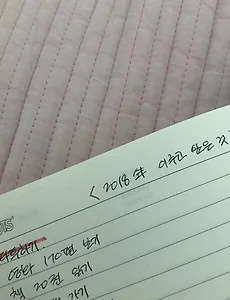 < 2018年 이루고 싶은 것
영화 170편 보기
책 20권 읽기
가기